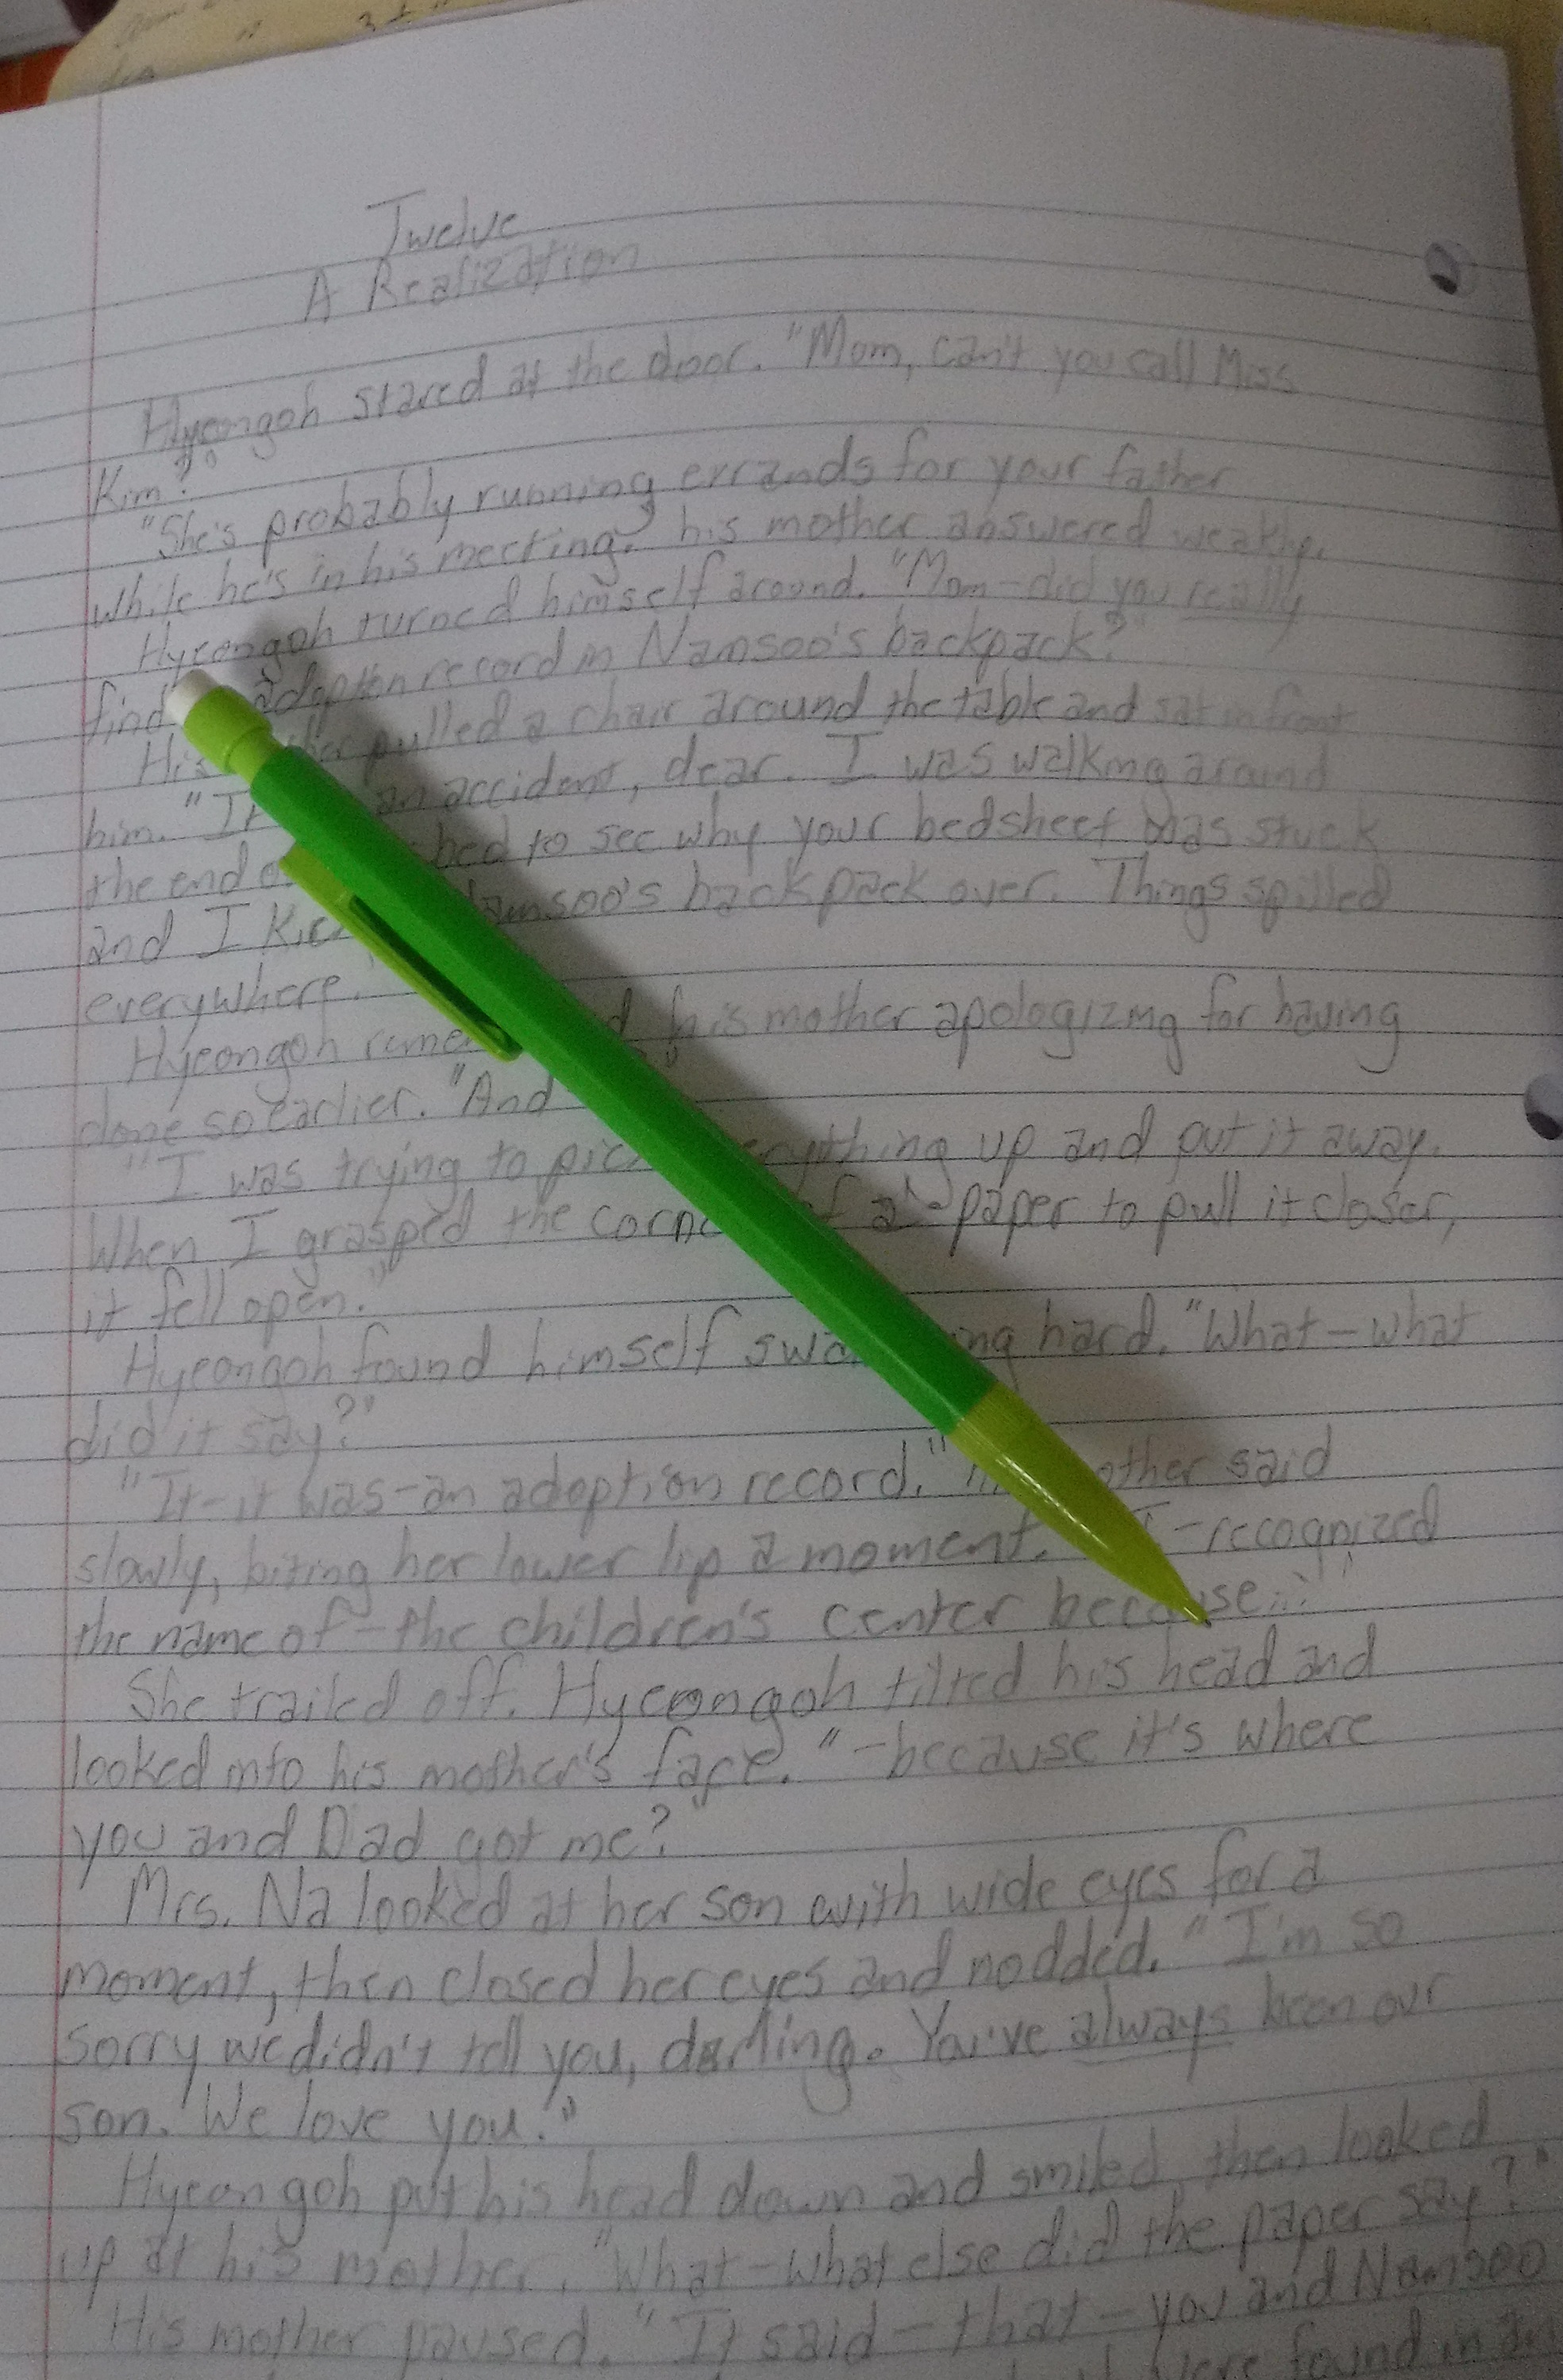 Twelve
A Realization
Hyeongoh stared at the door. "Mom, can't you call Miss
Kim?"
"She's probably running errands for your father
while he's in his meeting," his mother answered weakly.
Hyeongoh turned himself around. "Mom—did you really
find adoption record in Namsoo's backpack?"
His pulled a chair around the table and sat in front
him. "It an accident, dear. I was walking around
the end bed to see why your bedsheet was stuck
and I Namsoo's backpack over. Things spilled
everywhere."
Hyeongoh his mother apologizing for having
done so earlier. "And
"I was trying to up and put it away.
When I grasped the of a paper to pull it closer,
it fell open."
Hyeongoh found himself hard. "What—what
did it say?"
"It—it was—an adoption record." said
slowly, biting her lower lip a moment. I—recognized
the name of—the children's center because..."
She trailed off. Hyeongoh tilted his head and
looked into his mother's face. "—because it's where
you and Dad got me?"
Mrs. Na looked at her son with wide eyes for a
moment, then closed her eyes and nodded. "I'm so
sorry we didn't tell you, darling. You've always been our
son. We love you."
Hyeongoh put his head down and smiled, then looked
up at his mother. "What—what else did the paper say?"
His mother paused. "It said—that—you and Namsoo
were found in an